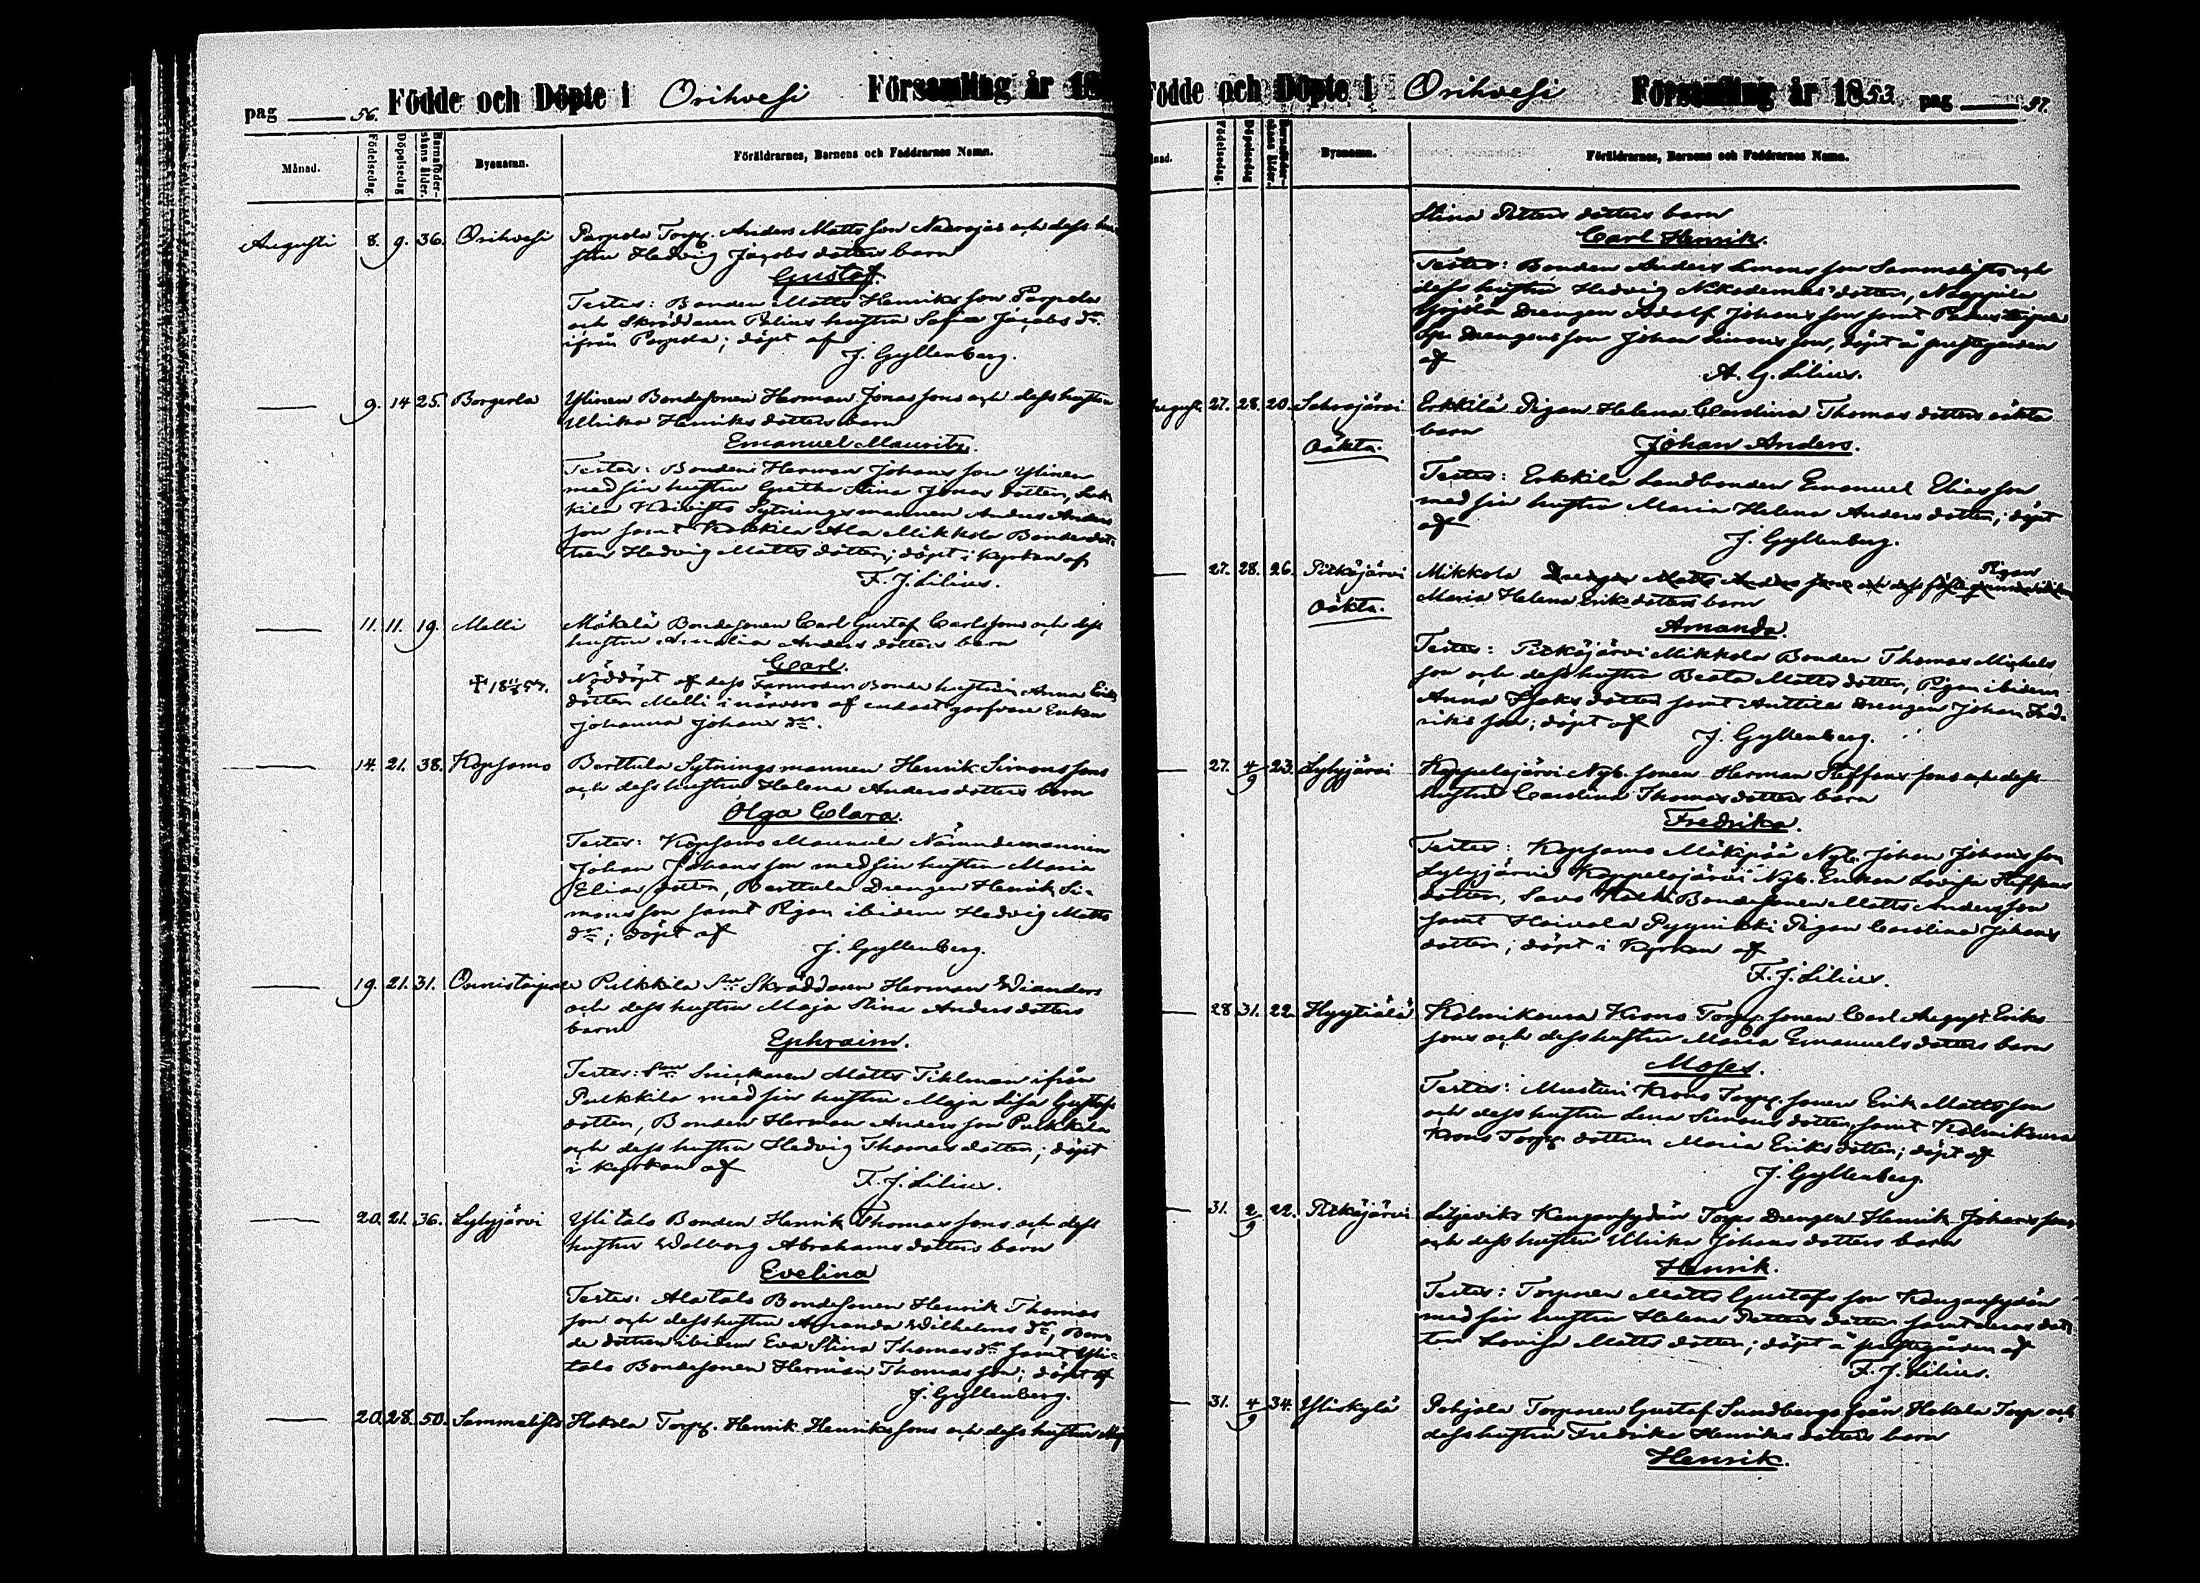 pag 56. Födde och Döpte i Orihvesi Församling år 18
Månad. Födelsedag. Döpelsedag Barnaföderskans ålder. Bynamn. Föräldrarnes, Barnens och Faddrarnes Namn.
Augusti 8. 9. 36. Orihvesi Parpola Torp. Anders Matts son och dess hu-
stru Hedvig Jacobs dotters barn
Gustaf.
Testes: Bonden Matts Henriks son Parpola
och Skräddaren hustru Sofia Jacobs dr
ifrån Parpola; döpt af
J. Gyllenberg.
9. 14 25. Ylinen Bondesonen Herman Jonas sons och dess hustru
Ulrika Henriks dotters barn
Emanuel Mauritz.
Testes: Bonden Herman Johans son Ylinen
med sin hustru Greta Stina Jonas dotter,
kila Sytningsmannen Anders Anders
son samt Ala Mikkola Bondedot-
tren Hedvig Matts dotter; döpt i kyrkan af
F. J. Lilius.
11. 11. 19. Malli Mäkelä Bondesonen Carl Gustaf Carlssons och dess
hustru Amalia Anders dotters barn
Carl.
Nöddöpt af dess Farmoder Bonde hustrun Anna Eriks
dotter Malli i närvaro af endast Enkan
Johanna Johans dr.
14. 21. 38. Kopsamo Berttula Sytningsmannen Henrik Simons sons
och dess hustru Helena Anders dotters barn
Olga Clara.
Testes: Kopsamo Nämndemannen
Johan Johans son med sin hustru Maria
Elias dotter, Berttula Drengen Henrik Si-
mons son samt Pigan ibidem Hedvig Matts
dr; döpt af
J. Gyllenberg.
19. 21. 31. Onnistaipale Pulkkila Skräddaren Herman Wianders
och dess hustru Maja Stina Anders dotters
barn
Ephraim.
Testes: Snickaren Matts Tiklman ifrån
Pulkkila med sin hustru Maja Lisa Gustafs
dotter, Bonden Herman Anders son Pulkkila
och dess hustru Hedvig Thomas dotter; döpt
i kyrkan af
F. J. Lilius.
20. 21. 36. Lylyjärvi Ylitalo Bonden Henrik Thomas sons och dess
hustru Walborg Abrahams dotters barn
Evelina
Testes: Alatalo Bondesonen Henrik Thomas
son och dess hustru Amanda Wilhelms dr, Bon-
de dottren ibidem Eva Stina Thomas dr samt Yli-
talo Bondesonen Herman Thomas son; döpt af
J. Gyllenberg.
20. 28. 50. Sammalisto Hakala Torp. Henrik Henriks sons och dess hustru
Födde och Döpte i Orihvesi Församling år 1853. pag 57.
Födelsedag. Döpelsedag Barnaföderskans ålder. Bynamn. Föräldrarnes, Barnens och Faddrarnes Namn.
Stina Petters dotters barn
Carl Henrik.
Testes: Bonden Anders Simons son Sammalisto och
dess hustru Hedvig Nikodemus dotter,
Yrjölä Drengen Adolf Johans son samt
Drengen Johan Simons son, döpt å prestgården
af
A. G. Lilius.
August. 27. 28. 20. Sahrajärvi Erkkilä Pigan Helena Carolina Thomas dotters oäkta
Oäkta. barn
Johan Anders.
Testes: Erkkilä Landbonden Emanuel Elias son
med sin hustru Maria Helena Anders dotter; döpt
af
J. Gyllenberg.
27. 28. 26. Pitkäjärvi Mikkola Drengen Matts Anders sons och dess Pigan
Oäkta. Maria Helena Eriks dotters barn
Amanda.
Testes: Pitkäjärvi Mikkola Bonden Thomas Michels
son och dess hustru Beata Matts dotter, Pigan ibidem
Anna Isaks dotter samt Anttila Drengen Johan Fred-
riks son; döpt af
J. Gyllenberg.
27. 4/9 23. Lylyjärvi Koppelojärvi Nyb. sonen Herman Steffans sons och dess
hustru Carolina Thomas dotters barn
Fredrika.
Testes: Kopsamo Mäkipää Nyb. Johan Johans son
Lylyjärvi Koppelojärvi Nyb. Enkan Lovisa Steffans
dotter, Savo Bondesonen Matts Anders son
samt Haivala Pyynikki Pigan Carolina Johans
dotter; döpt i kyrkan af
F. J. Lilius.
28. 31. 22. Hyytiälä Kolnikoura Krono Torp. sonen Carl August Eriks
sons och dess hustru Maria Emanuels dotters barn
Moses.
Testes: Krono Torp. sonen Erik Matts son
och dess hustru Lena Simons dotter, samt Kolnikoura
Krono Torp. dottern Maria Eriks dotter; döpt af
J. Gyllenberg.
31. 2/9 22. Pitkäjärvi Liljeviks Kangaspydän Torps Drengen Henrik Johans sons
och dess hustru Ulrika Johans dotters barn
Henrik.
Testes: Torparen Matts Gustafs son
med sin hustru Helena Petters dotter samt deras dot-
ter Lovisa Matts dotter; döpt å prestgården af
F. J. Lilius.
31. 4/9 34. Yliskylä Pohjola Torparen Gustaf Sundbergs från Hakala Torp och
dess hustru Fredrika Henriks dotters barn
Henrik.